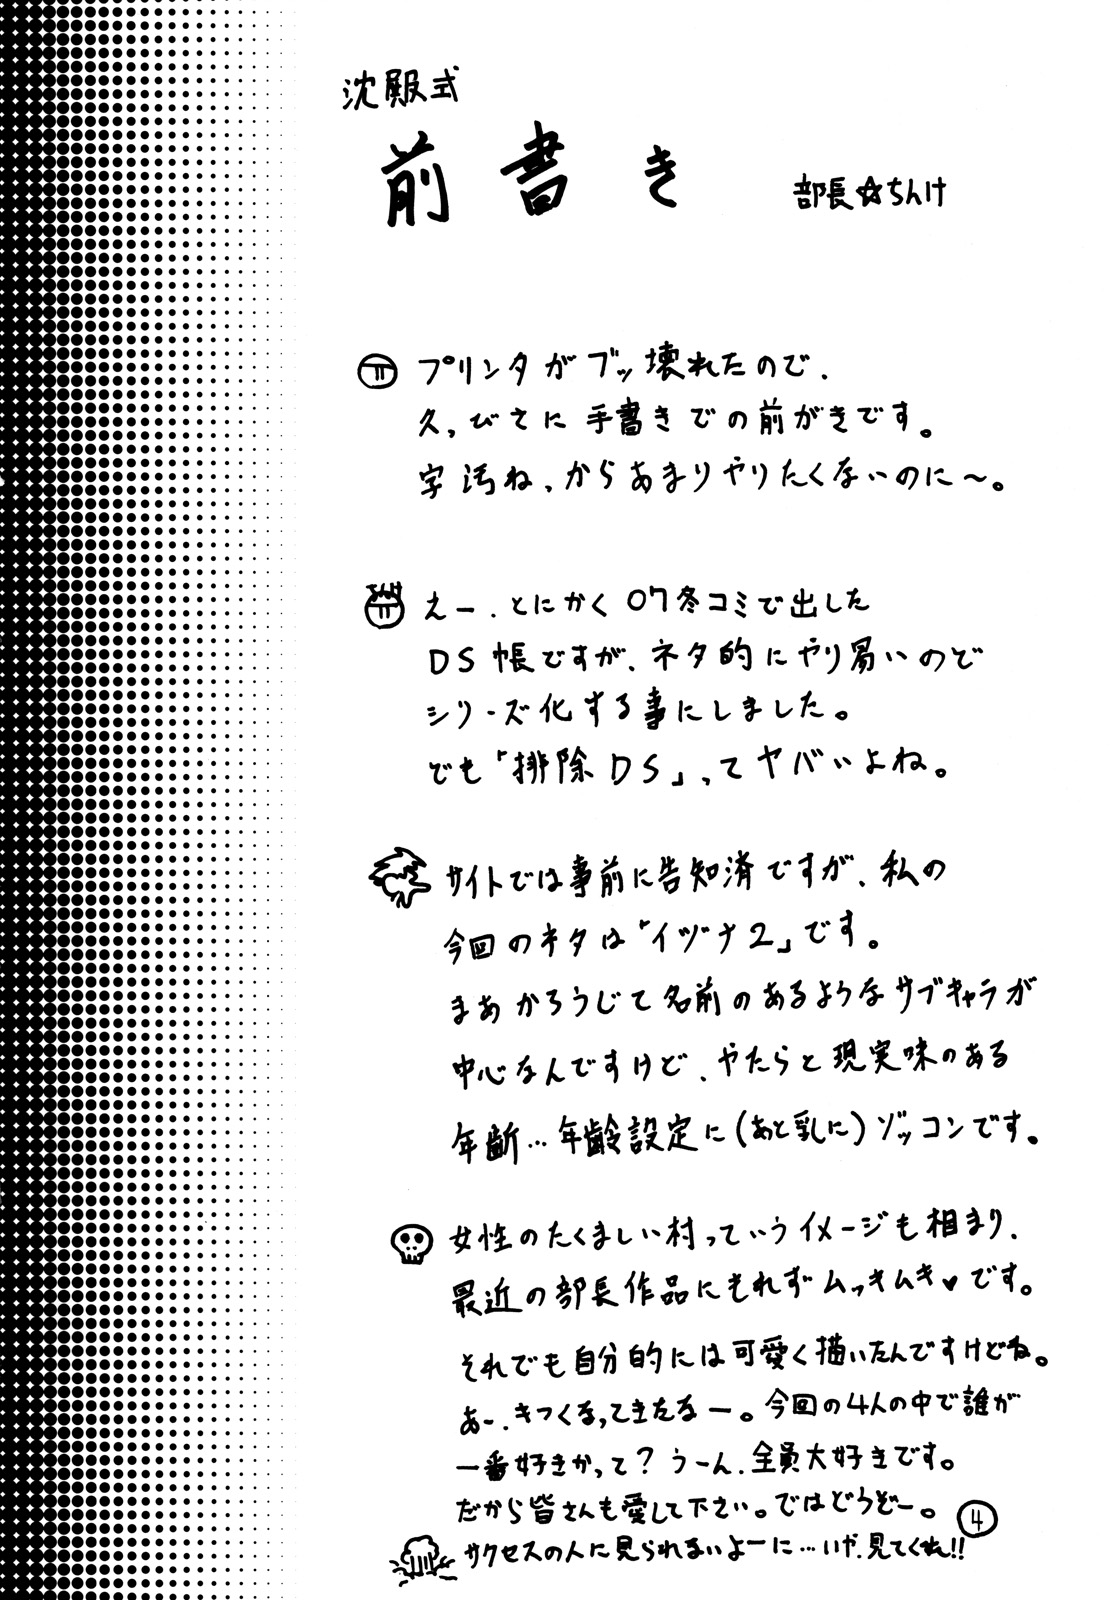 沈殿式
前書き
部長☆ちんけ
プリンタがブッ壊れたので、
久っびさに手書きでの前がきです。
字汚ねぃからあまりやりたくないのに～。
えー、とにかく07冬コミで出した
DS帳ですが、ネタ的にやり易いので
シリーズ化する事にしました。
でも「排除DS」ってヤバいよね。
サイトでは事前に告知済ですが、私の
今回のネタは「イヅナ2」です。
まあかろうじて名前のあるようなサブキャラが
中心なんですけど、やたらと現実味のある
年齢…年齢設定に(あと乳に)ゾッコンです。
女性のたくましい村っていうイメージも相まり、
最近の部長作品にもれずムっキムキ♥です。
それでも自分的には可愛く描いたんですけどね。
あー、きつくなってきたなー。今回の4人の中で誰が
一番好きかって？うーん、全員大好きです。
だから皆さんも愛して下さい。ではどうぞー。
4
サクセスの人に見られないよーに…いや、見てくれ!!